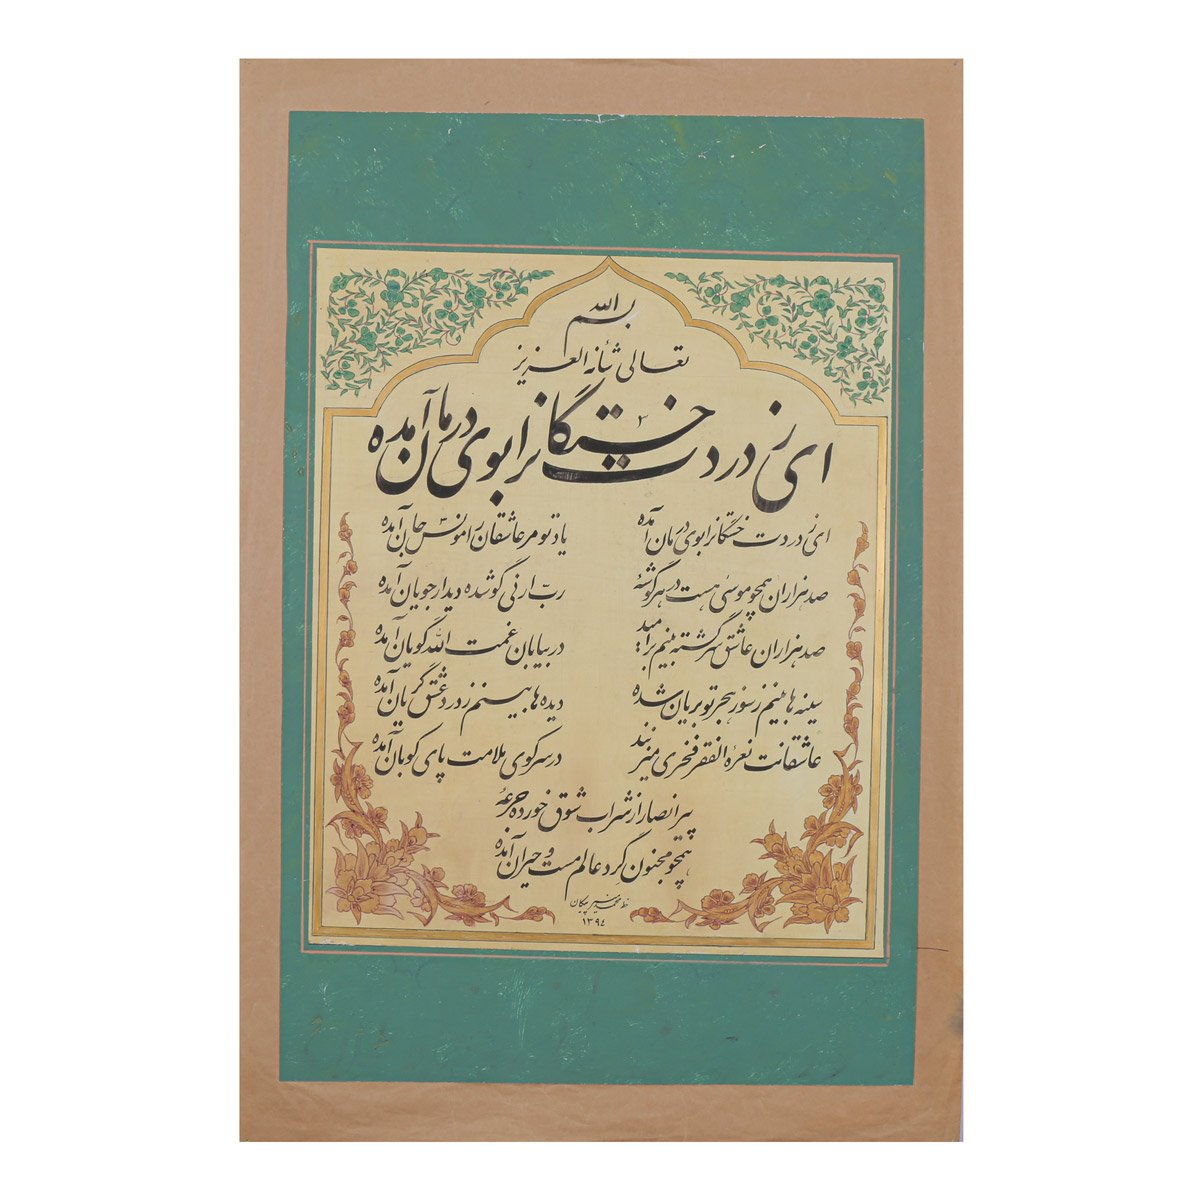 بسم الله
تعالی شأنه العزیز
ای ز دردت خستگانرا بوی درمان آمده
ای ز دردت خستگانرا بوی درمان آمده یاد تو مر عاشقانرا مونس جان آمده
صد هزاران همچو موسی هست در هر گوشهٔ ربّ ارنی گو شده دیدار جویان آمده
صد هزاران عاشق سرگشته بینم بر امید در بیابان غمت الله گویان آمده
سینه ها بینم ز سوز هجر تو بریان شده دیده ها بینم ز درد عشق گریان آمده
عاشقانت نعرهٔ الفقر فخری میزنند در سر کوی ملامت پای کوبان آمده
پیر انصار از شراب شوق خورده جرعهٔ
همچو مجنون گرد عالم مست و حیران آمده
خط محمد
۱۳۹۴